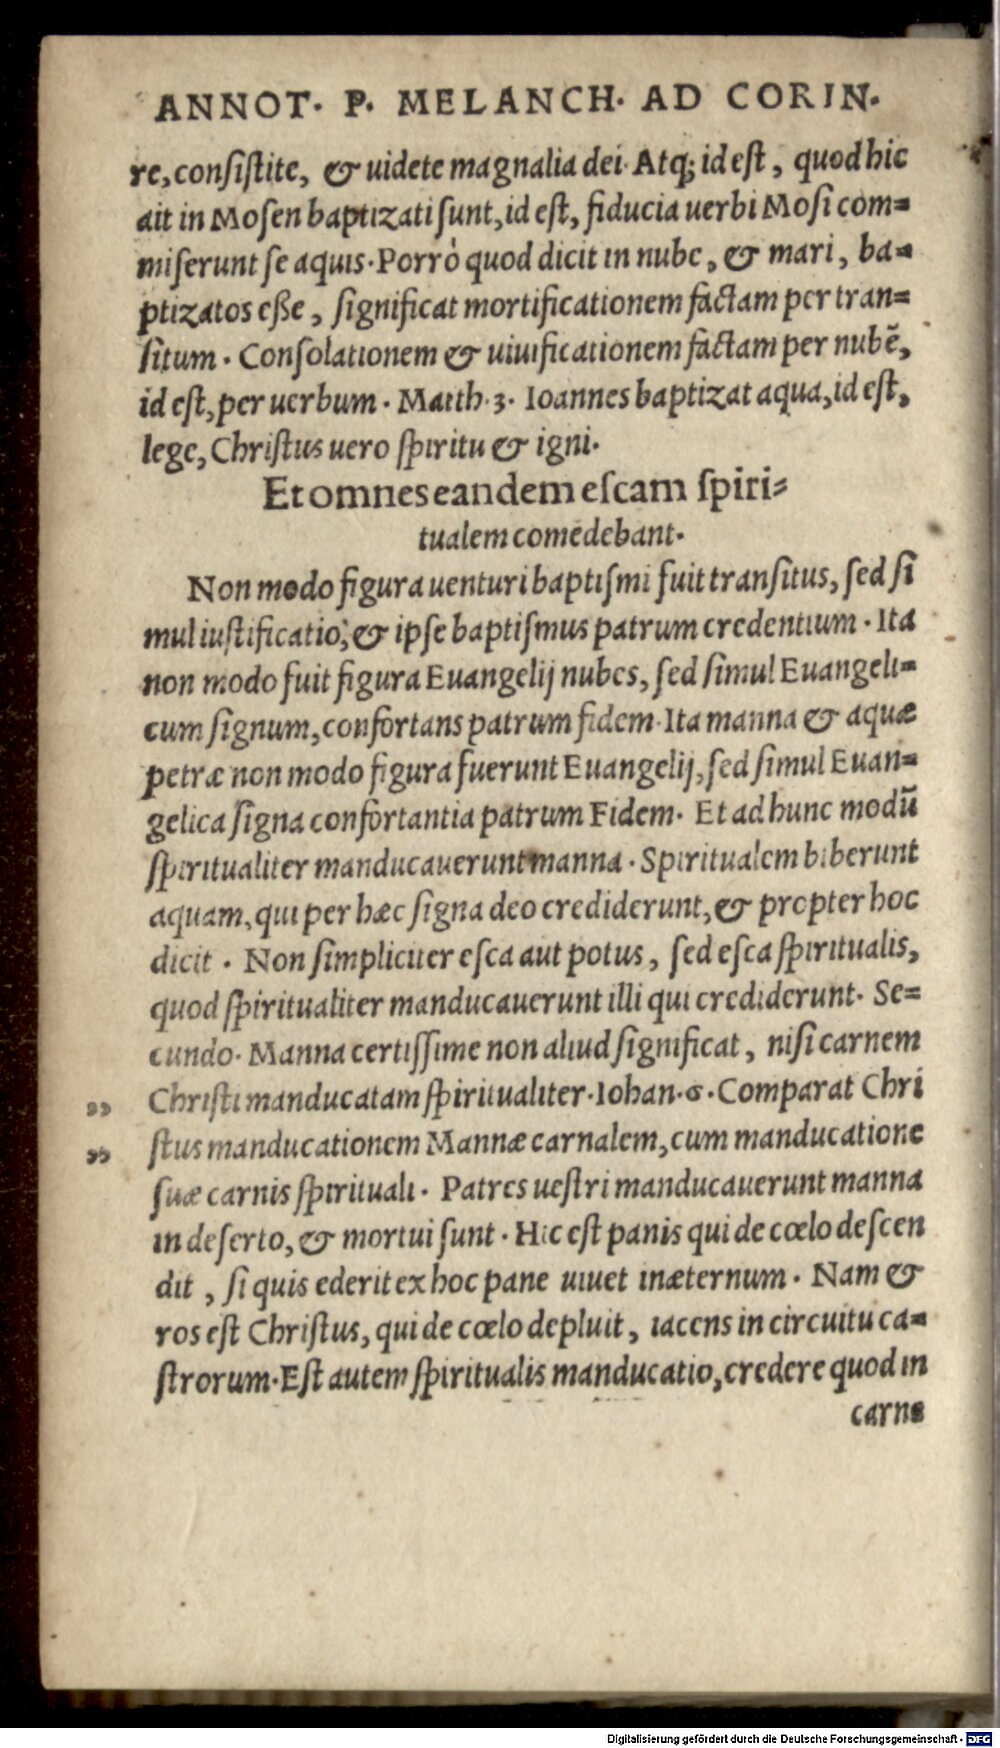 ANNOT. P. MELANCH. AD CORIN.
re, consistite, & uidete magnalia dei. Atq; id est, quod hic
ait in Mosen baptizati sunt, id est, fiducia uerbi Mosi com=
miserunt se aquis. Porrò quod dicit in nube, & mari, ba=
ptizatos eße, significat mortificationem factam per tran=
situm. Consolationem & uiuificationem factam per nubē,
id est, per uerbum. Matth. 3. Ioannes baptizat aqua, id est,
lege, Christus uero spiritu & igni.
Et omnes eandem escam spiri=
tualem comedebant.
Non modo figura uenturi baptismi fuit transitus, sed si
mul iustificatio, & ipse baptismus patrum credentium. Ita
non modo fuit figura Euangelij nubes, sed simul Euangeli=
cum signum, confortans patrum fidem. Ita manna & aquæ
petræ non modo figura fuerunt Euangelij, sed simul Euan=
gelica signa confortantia patrum Fidem. Et ad hunc modū
spiritualiter manducauerunt manna. Spiritualem biberunt
aquam, qui per hæc signa deo crediderunt, & propter hoc
dicit. Non simpliciter esca aut potus, sed esca spiritualis,
quod spiritualiter manducauerunt illi qui crediderunt. Se=
cundo. Manna certissime non aliud significat, nisi carnem
,, Christi manducatam spiritualiter. Iohan. 6. Comparat Chri
,, stus manducationem Mannæ carnalem, cum manducatione
suæ carnis spirituali. Patres uestri manducauerunt manna
in deserto, & mortui sunt. Hic est panis qui de cœlo descen
dit, si quis ederit ex hoc pane uiuet inæternum. Nam &
ros est Christus, qui de cœlo depluit, iacens in circuitu ca=
strorum. Est autem spiritualis manducatio, credere quod in
carne
Digitalisierung gefördert durch die Deutsche Forschungsgemeinschaft - DFG